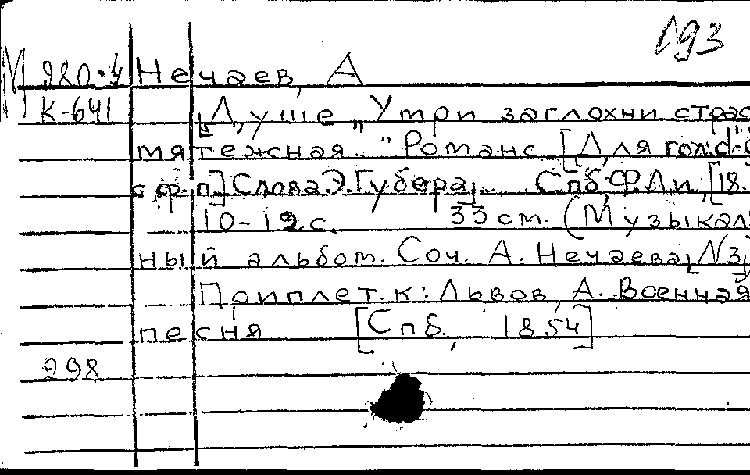 193
М 980.4 Нечаев, А
К-641 [Душе] "Утри заглохни страс
мятежная..." Романс. [Для гол.
с ф-п.] [Слова Э. Губера]. Спб, Ф.Ли, [18.
10-12 с. 33 см. (Музыкаль
ный альбом. Соч. А. Нечаева, [№3]
Приплет. к: Львов, А. Военная
песня [Спб, 1854]
298